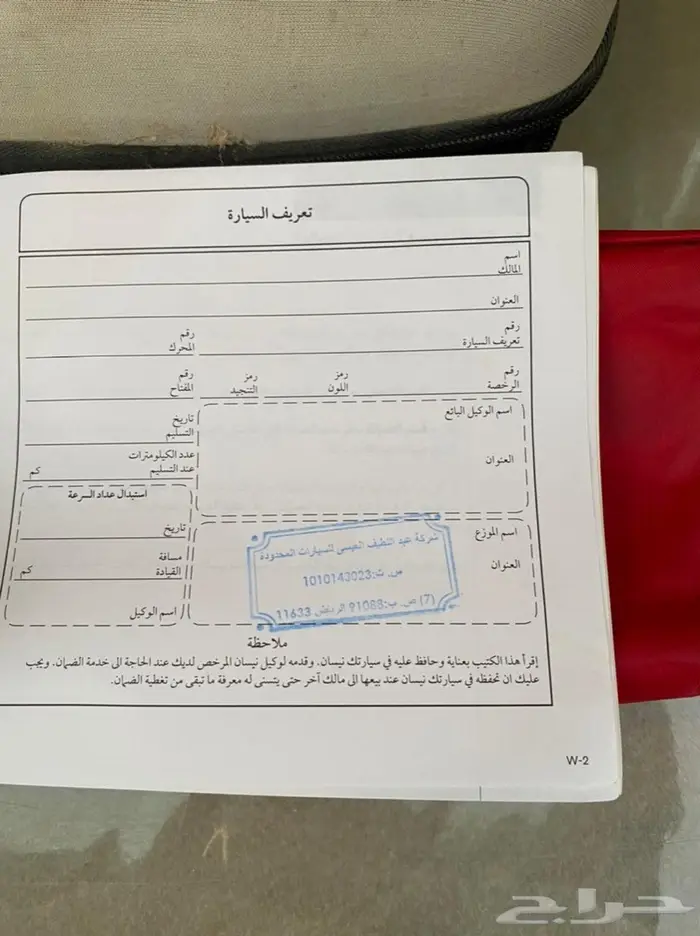 تعريف السيارة
اسم
المالك
العنوان
رقم
تعريف السيارة
رقم
المحرك
رقم
الرخصة
رمز
اللون
رمز
التنجيد
رقم
المفتاح
اسم الوكيل البائع
العنوان
تاريخ
التسليم
عدد الكيلومترات
عند التسليم
كم
استبدال عداد السرعة
تاريخ
مسافة
القيادة
كم
اسم الوكيل
اسم الموزع
العنوان
شركة عبد اللطيف العيسى للسيارات المحدودة
س. ت:1010143023
(7) ص. ب:91088 الرياض 11633
ملاحظة
إقرأ هذا الكتيب بعناية وحافظ عليه في سيارتك نيسان. وقدمه لوكيل نيسان المرخص لديك عند الحاجة الى خدمة الضمان. ويجب
عليك ان تحفظه في سيارتك نيسان عند بيعها الى مالك آخر حتى يتسنى له معرفة ما تبقى من تغطية الضمان.
W-2
حراج